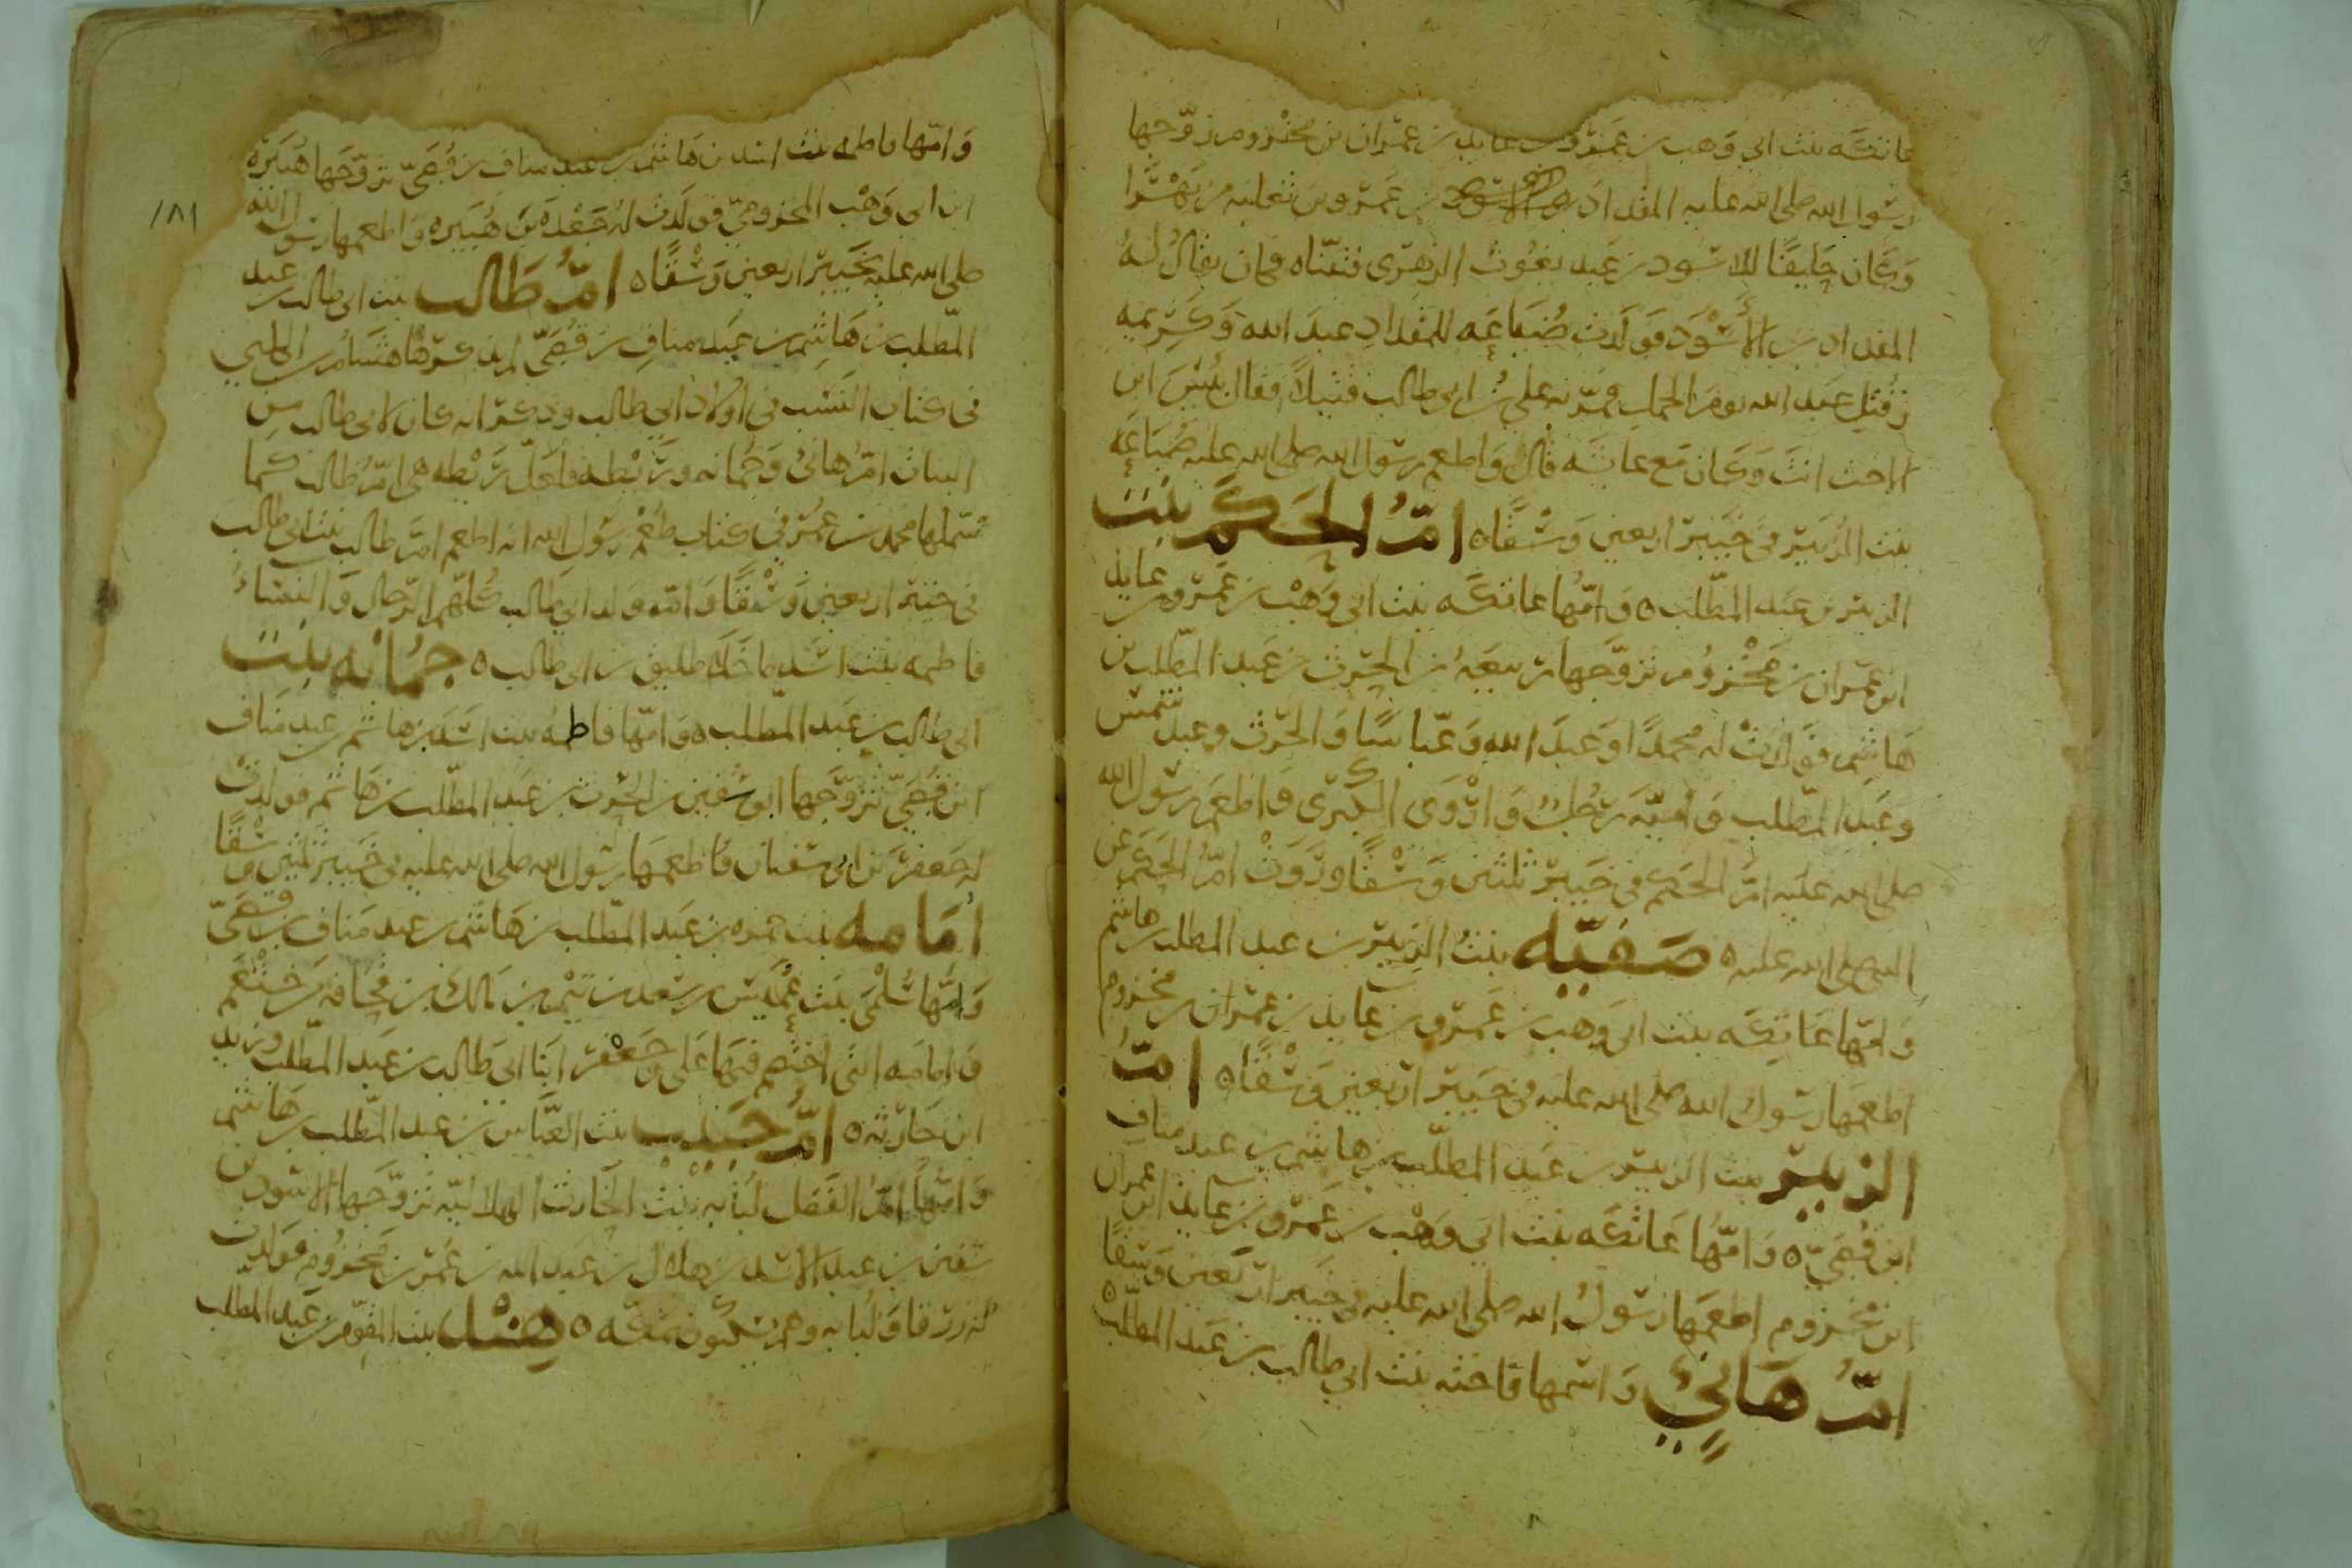 عاتكه بنت ابي وهب بن عمرو بن عايد بن عمران بن مخزوم زوّجها
رسول الله صلى الله عليه المقداد بن عمرو بن ثعلبه من بهرا
وكان حليفًا للاسود بن عبد يغوث الزهرى فتبنّاه فكان يقال له
المقداد بن الأسْوَد فولدت ضُباعَه للمقداد عبدَ الله وَكَريمه
قُتِل عبد الله يوم الجمل فمرّ به علي بن ابي طالب قتيلاً فقال بئس ابن
الاخت انتَ وكان مع عائشه قال واطعم رسول الله صلى الله عليه ضُبَاعَه
بنت الزُبَيْر في خَيْبَر اربعين وَسْقًا ٥ امّ الحَكَم بنت
الزبير بن عبد المطّلب ٥ وامّها عاتكه بنت ابي وَهْب بن عمرو بن عايد
ابن عمران بن مَخْزُوم تزوّجها ربيعَهُ بن الحرث بن عَبد المطّلب بن
هَاشِم فوَلَدَتْ له محمدًا وعبدَ الله وَعَبّاسًا وَالحرث وعبد شمس
وعبد المطّلب وَاميّه رَجُلٌ وَارْوَى الكبْرى وَاطعمَ رسول الله
صلى الله عليه امّ الحكم في خيبر ثلثين وَسْقًا وروَتْ امّ الحكم عن
النبي صلى الله عليه ٥ صَفيّه بنتُ الزبير بن عبد المطلب بن هاشم
وَامّها عَاتِكَه بنت ابي وَهب بن عَمرو بن عايد بن عمران بن مخزوم
اطعمَها رسول الله صلى الله عليه في خيبر اربعين وَسْقًا ٥ امّ
الزبير بنت الزبير بن عَبد المطلّب بن هاشم بن عبد مناف
ابن قُصَيّ ٥ وَامّهَا عَاتكَه بنت ابي وَهْب بن عَمْرو بن عَايد ابن عمران
ابن مَخْزوم اطعمَها رَسُولُ الله صلى الله عليه في خيبر اربَعين وَسْقًا ٥
امّ هَانِئٍ وَاسْمها فاختَه بنت ابي طالب بن عَبد المطلّب
وَامّها فاطمه بنت اسد بن هاشم بن عبد مناف بن قُصَيّ تزوّجَها هُبَيْرة
ابن ابي وَهْب المخزوميّ فولَدَت له جَعْدَة بنَ هُبَيره وَاطعمها رسول الله
صلى الله عليه بخَيْبَر اربعين وَسْقًا ٥ امّ طَالب بنت ابي طالب بن عبد
المطّلب بن هَاشِم بن عبد منافِ بن قُصَيّ لم يذكرهَا هشام بن الكلبي
في كتاب النَسَب في اولاد ابي طالب وذكر انه كان لابي طالب من
البنات امّ هانئ وَجُمَانه ورَيْطه ولعَلّ رَيْطه هي امّ طالب كما
سمّاها محمد بن عمَر في كتاب طُعْم رسُول الله انه اطعم امّ طالب بنت ابي طالب
في خيبر اربعين وَسْقًا وَامّ وَلد ابي طالب كُلّهم الرّجال وَالنسَاء
فاطمه بنت اسَد ما خَلا طليق بن ابي طالب ٥ جُمانَه بنت
ابي طالب بن عَبد المطّلب ٥ وَامّها فاطمه بنت اسَد بن هاشم بن عبد منَاف
ابن قُصَيّ تزوّجَها ابو سفين بن الحرث بن عَبد المطّلب بن هَاشم فولدت
له جَعفرَ بن ابي سفيان وَاطعمَها رسُول الله صلى الله عليه في خيبر ثلثين وَسْقًا
اُمَامه بنت حمزه بن عَبد المطّلب بن هَاشم بن عبد مَناف بن قصَيّ
وَامّها سَلْمى بنت عُمَيس بن سَعد بن تَيْم بن مَالك بن قُحَافة من خَثْعَم
وَامَامَه التي اختصم فيهَا عَلي وَجَعْفر ابنَا ابي طَالب بن عَبد المطّلب وزيد
ابن حَارثه ٥ امّ حَبيب بنت العبّاس بن عبد المطّلب بن هَاشم
وَامّها امّ الفَضل لُبَابه بنت الحَارث الهلاليّه تزوّجَها الاسوَد بن
سفين بن عبد الاسد بن هلال بن عبد الله بن عُمَر بن مَخزوُم فوَلَدت
له رزقا وَلُبابه وهم يسكُنون بمكّه ٥ هِنْد بنت المقوّم بن عَبد المطلب
١٨١